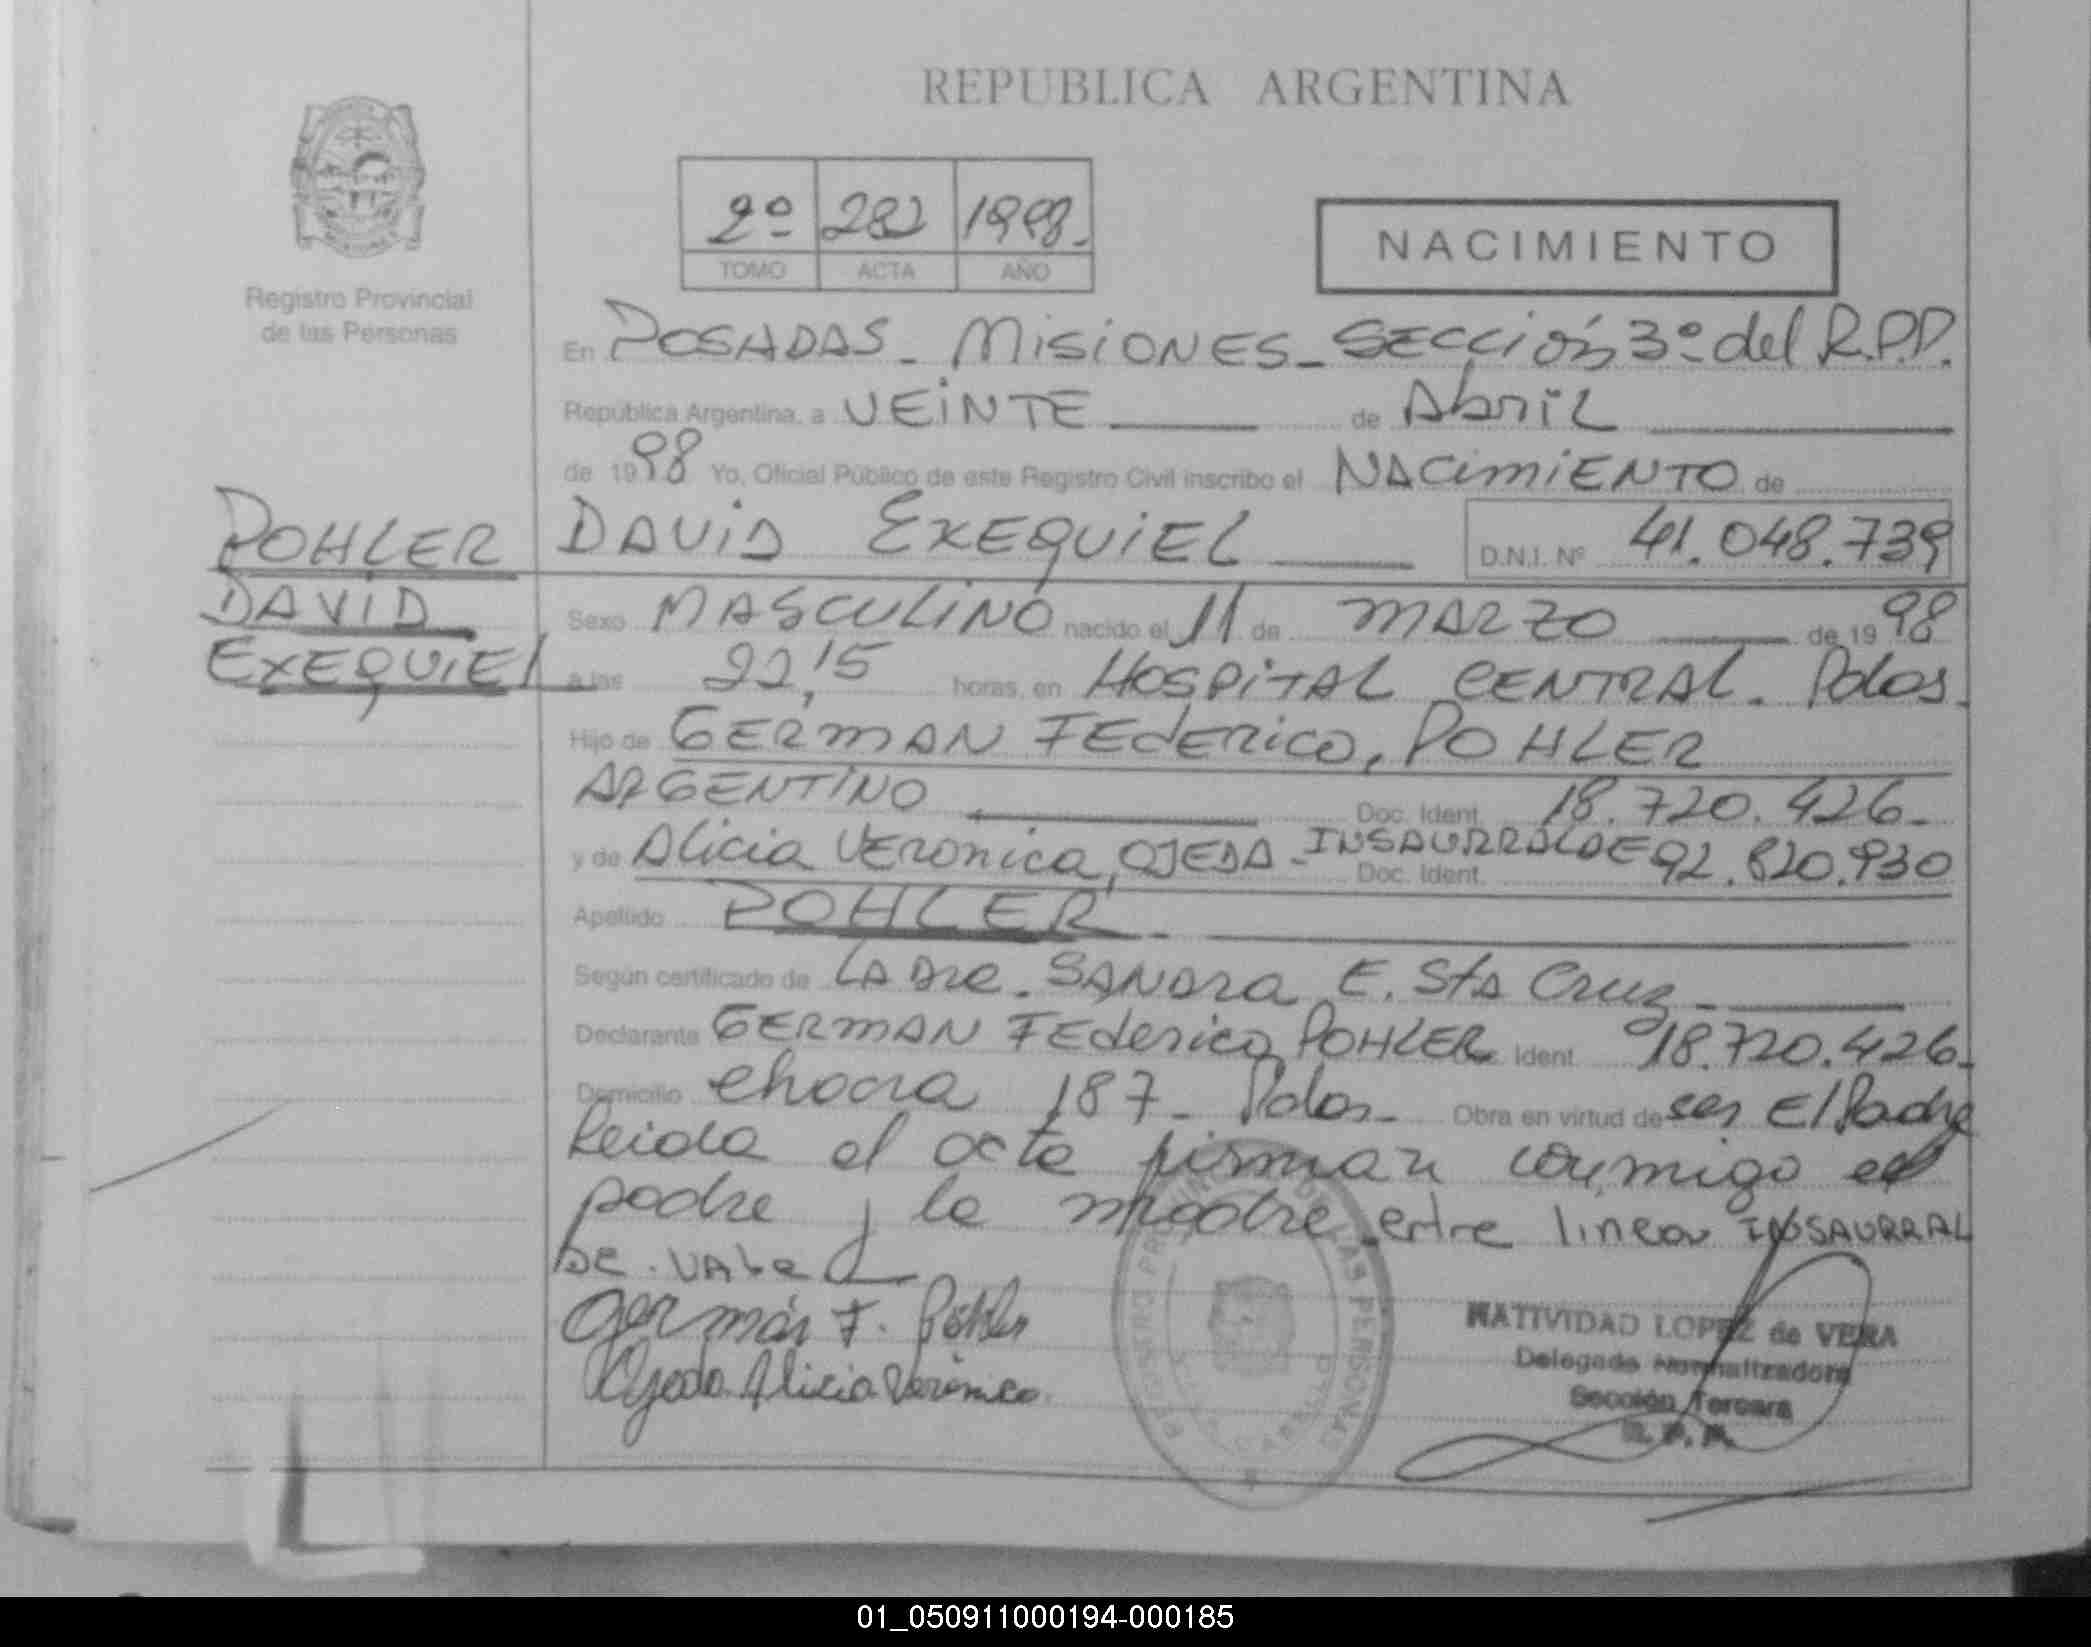 REPUBLICA ARGENTINA
Registro Provincial
de las Personas
2º 282 1998.
TOMO ACTA AÑO
NACIMIENTO
En POSADAS - MISIONES - SECCIÓN 3º del R.P.P.
República Argentina, a VEINTE de Abril
de 1998 Yo, Oficial Público de este Registro Civil inscribo el NACIMIENTO de
POHLER
DAVID
EXEQUIEL
DAVID EXEQUIEL D.N.I. Nº 41.048.739
Sexo MASCULINO nacido el 11 de MARZO de 1998
a las 22,15 horas, en HOSPITAL CENTRAL - Pdas.
Hijo de GERMAN FEderico, POHLER
ARGENTINO Doc. Ident. 18.720.426-
y de Alicia VEronica, OJEDA - INSAURRALDE Doc. Ident. 92.820.930
Apellido POHLER -
Según certificado de LA Dra. SANDRA E. Sta Cruz -
Declarante GERMAN FEderico POHLER Ident. 18.720.426-
Domicilio chacra 187 - Pdas - Obra en virtud de ser El Padre
Leida el acta firman conmigo el
padre y la madre. entre linea INSAURRAL
DE. VALE
Germán F. Pohler
Ojeda Alicia Verónica.
REGISTRO PROVINCIAL DE LAS PERSONAS
NATIVIDAD LOPEZ de VERA
Delegada Normalizadora
Sección Tercera
R. P. P.
01_050911000194-000185